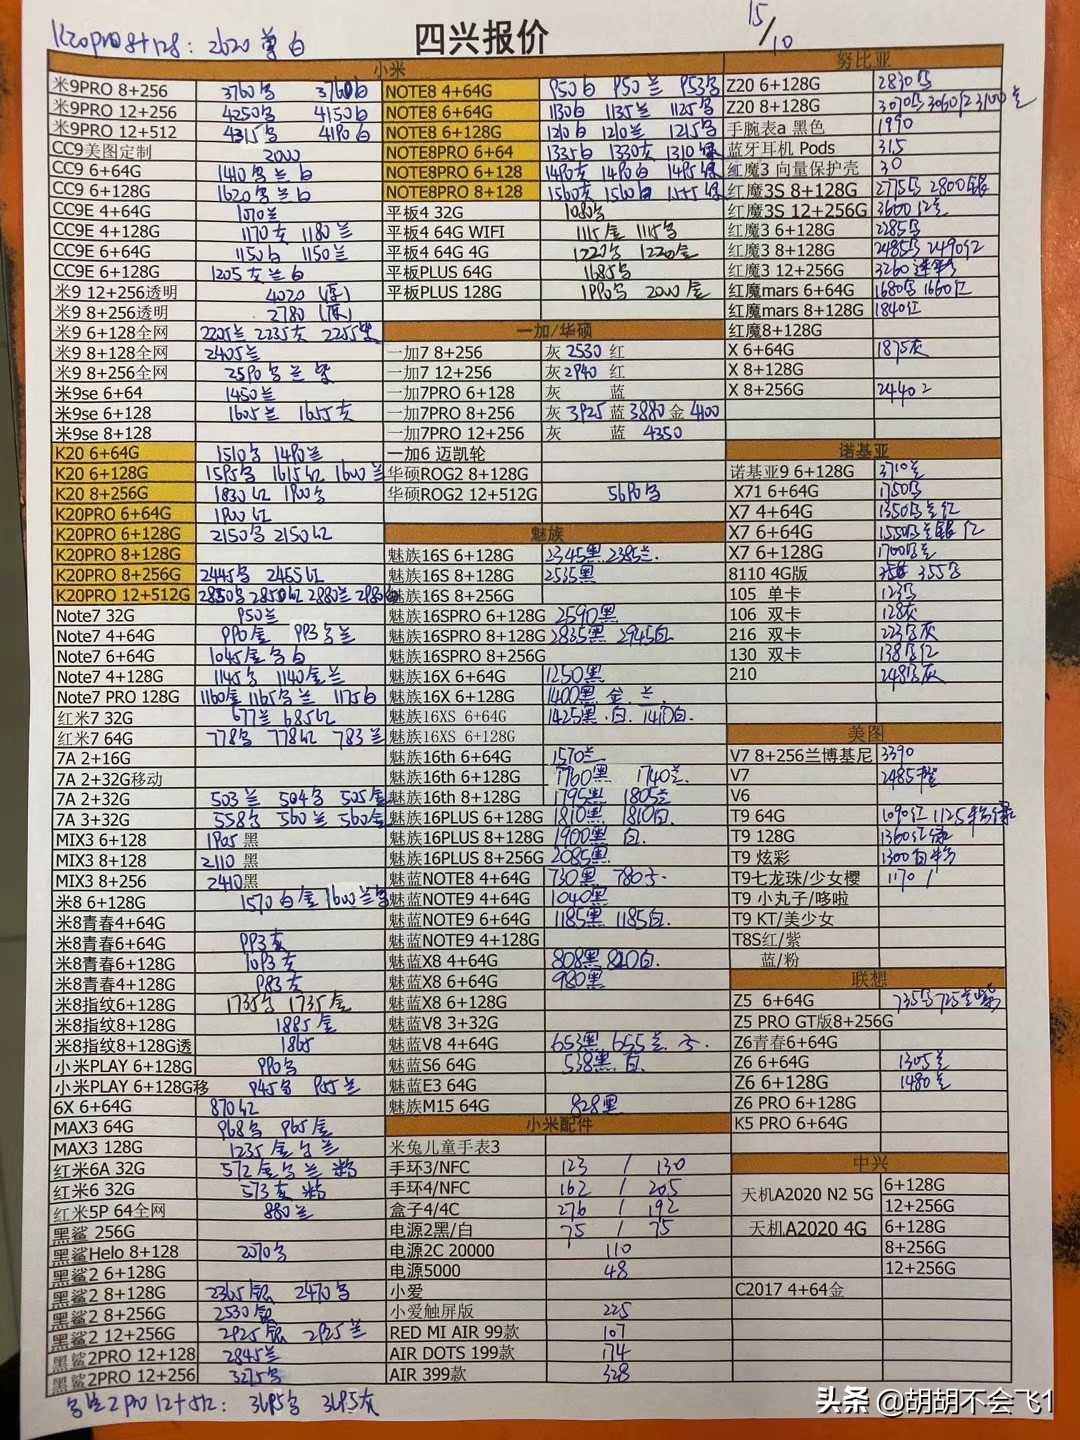 K20pro 8+128: 2620 兰 白
四兴报价
15/10
小米
米9PRO 8+256 3760 3760白
米9PRO 12+256 4250 4150白
米9PRO 12+512 4315 4190白
CC9美图定制 2000
CC9 6+64G 1410 兰 白
CC9 6+128G 1620 兰 白
CC9E 4+64G 1070兰
CC9E 4+128G 1170灰 1180兰
CC9E 6+64G 1150白 1150兰
CC9E 6+128G 1205灰兰白
米9 12+256透明 4020
米9 8+256透明 2780
米9 6+128全网 2205兰 2235灰 2255
米9 8+128全网 2405兰
米9 8+256全网 2590 兰
米9se 6+64 1450兰
米9se 6+128 1605兰 1655灰
米9se 8+128
K20 6+64G 1510 1490兰
K20 6+128G 1595 1615红 1600兰
K20 8+256G 1830红 1900
K20PRO 6+64G 1900红
K20PRO 6+128G 2150 2150红
K20PRO 8+128G
K20PRO 8+256G 2445 2465红
K20PRO 12+512G 2850 2850红 2880兰
Note7 32G 950兰
Note7 4+64G 990金 993 兰
Note7 6+64G 1045金 白
Note7 4+128G 1145 1140金兰
Note7 PRO 128G 1160金 1165 兰 1175白
红米7 32G 677兰 685红
红米7 64G 778 778红 783兰
7A 2+16G
7A 2+32G移动
7A 2+32G 503兰 504 505金
7A 3+32G 558 560兰 560金
MIX3 6+128 1905 黑
MIX3 8+128 2110 黑
MIX3 8+256 2410黑
米8 6+128G 1570白金 1600兰
米8青春4+64G
米8青春6+64G 993灰
米8青春6+128G 1093灰
米8青春4+128G 983灰
米8指纹6+128G 1735 1735金
米8指纹8+128G 1885金
米8指纹8+128G透 1865
小米PLAY 6+128G 990
小米PLAY 6+128G移 945 955兰
6X 6+64G 870红
MAX3 64G 968 965金
MAX3 128G 1235金 兰
红米6A 32G 572金 兰 粉
红米6 32G 573灰 粉
红米5P 64全网 880兰
黑鲨 256G
黑鲨Helo 8+128 2070
黑鲨2 6+128G
黑鲨2 8+128G 2365银 2470
黑鲨2 8+256G 2530银
黑鲨2 12+256G 2925银 2925兰
黑鲨2PRO 12+128 2845兰
黑鲨2PRO 12+256 3275
2pro 12+512: 3695 3695灰
NOTE8 4+64G 950白 950兰 953
NOTE8 6+64G 1130白 1135兰 1125
NOTE8 6+128G 1210白 1210兰 1215
NOTE8PRO 6+64 1335白 1330灰 1310绿
NOTE8PRO 6+128 1490灰 1490白 1495绿
NOTE8PRO 8+128 1560灰 1560白 1555绿
平板4 32G 1080
平板4 64G WIFI 1115金 1115
平板4 64G 4G 1220 1220金
平板PLUS 64G 1685
平板PLUS 128G 1990 2000金
一加/华硕
一加7 8+256 灰 2530 红
一加7 12+256 灰2940 红
一加7PRO 6+128 灰 蓝
一加7PRO 8+256 灰 3925 蓝 3880 金 4100
一加7PRO 12+256 灰 蓝 4350
一加6 迈凯轮
华硕ROG2 8+128G
华硕ROG2 12+512G 5690
魅族
魅族16S 6+128G 2345黑 2385兰.
魅族16S 8+128G 2535黑
魅族16S 8+256G
魅族16SPRO 6+128G 2590黑
魅族16SPRO 8+128G 2835黑 2945白
魅族16SPRO 8+256G
魅族16X 6+64G 1250黑
魅族16X 6+128G 1400黑 金 兰
魅族16XS 6+64G 1425黑.白. 1410白.
魅族16XS 6+128G
魅族16th 6+64G 1570兰
魅族16th 6+128G 1760黑 1740兰.
魅族16th 8+128G 1795黑 1805兰
魅族16PLUS 6+128G 1810黑 1810白.
魅族16PLUS 8+128G 1900黑 白.
魅族16PLUS 8+256G 2085黑
魅蓝NOTE8 4+64G 730黑 780
魅蓝NOTE9 4+64G 1040黑
魅蓝NOTE9 6+64G 1185黑 1185白.
魅蓝NOTE9 4+128G
魅蓝X8 4+64G 808黑 820白.
魅蓝X8 6+64G 980黑
魅蓝X8 6+128G
魅蓝V8 3+32G
魅蓝V8 4+64G 653黑 655兰.
魅蓝S6 64G 538黑.白.
魅蓝E3 64G
魅族M15 64G 828黑
小米配件
米兔儿童手表3
手环3/NFC 123 / 130
手环4/NFC 162 / 205
盒子4/4C 276 / 192
电源2黑/白 75 / 75
电源2C 20000 110
电源5000 48
小爱
小爱触屏版 225
RED MI AIR 99款 107
AIR DOTS 199款 174
AIR 399款 328
努比亚
Z20 6+128G 2830
Z20 8+128G 3070 3060红 3100兰
手腕表a 黑色 1990
蓝牙耳机 Pods 315
红魔3 向量保护壳 30
红魔3S 8+128G 2775 2800银
红魔3S 12+256G 3600红兰
红魔3 6+128G 2285
红魔3 8+128G 2485 2490红
红魔3 12+256G 3260
红魔mars 6+64G 1680 1660红
红魔mars 8+128G 1840红
红魔8+128G
X 6+64G 1875灰
X 8+128G
X 8+256G 2440
诺基亚
诺基亚9 6+128G 3710兰
X71 6+64G 1750
X7 4+64G 1350 兰红
X7 6+64G 1550 兰银红
X7 6+128G 1700 兰
8110 4G版 355
105 单卡 123
106 双卡 128灰
216 双卡 223 灰
130 双卡 138 红
210 248 灰
美图
V7 8+256兰博基尼 3390
V7 2485
V6
T9 64G 1090红 1125粉绿
T9 128G 1360红绿
T9 炫彩 1300
T9七龙珠/少女樱 1170 /
T9 小丸子/哆啦
T9 KT/美少女
T8S红/紫
蓝/粉
联想
Z5 6+64G 735 725兰
Z5 PRO GT版8+256G
Z6青春6+64G
Z6 6+64G 1305兰
Z6 6+128G 1480兰
Z6 PRO 6+128G
K5 PRO 6+64G
中兴
天机A2020 N2 5G 6+128G
12+256G
天机A2020 4G 6+128G
8+256G
12+256G
C2017 4+64金
头条 @胡胡不会飞1